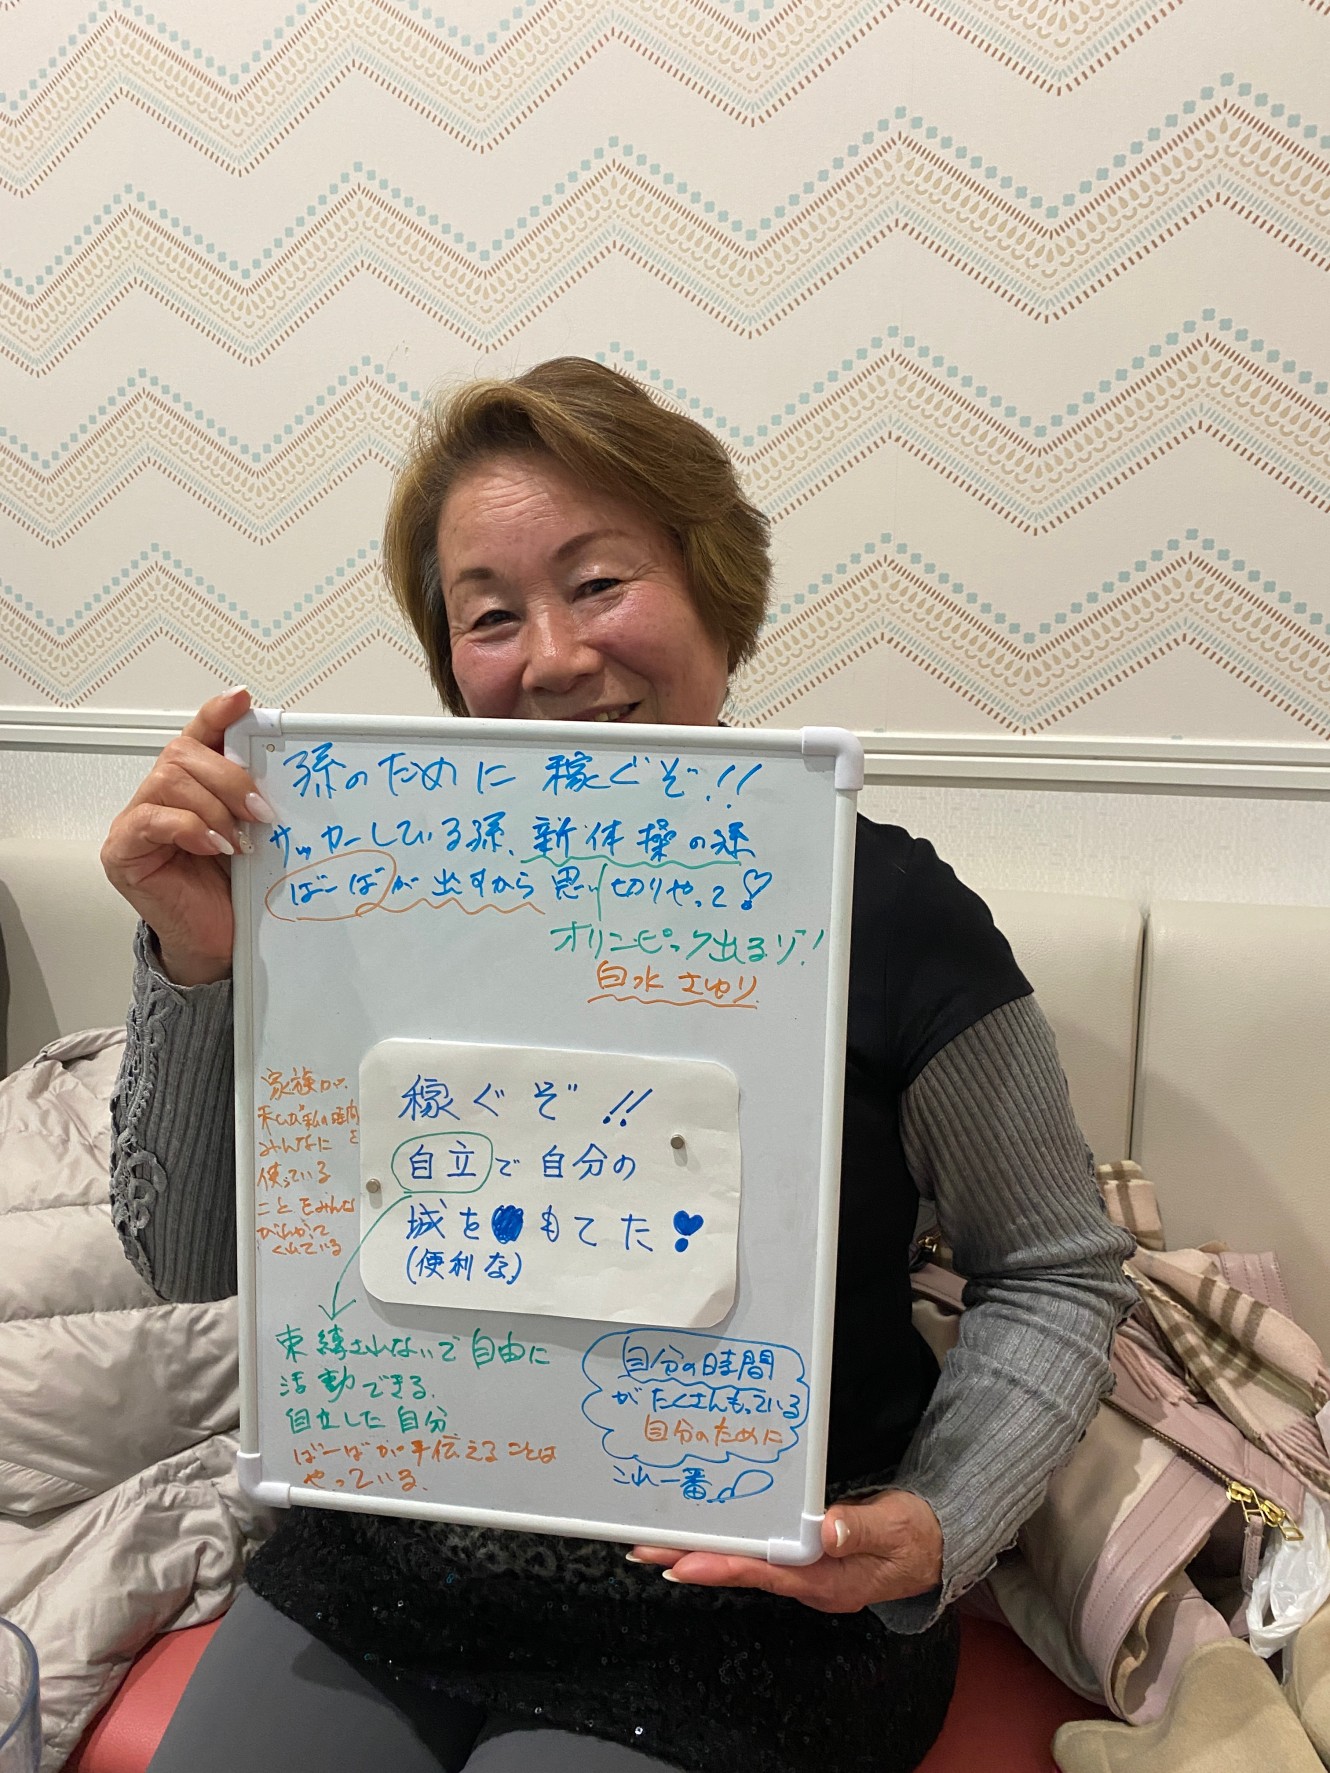 孫のために 稼ぐぞ!!
サッカーしている孫、新体操の孫
ばーばが出すから思い切りやって!
オリンピック出るゾ!
白水 さゆり
家族が、
私の時間を
みんなに
使っている
ことをみんな
がわかって
くれている
稼ぐぞ!!
自立で自分の
城を もてた!
(便利な)
束縛されないで自由に
活動できる。
自立した自分
ばーばが手伝えることは
やっている。
自分の時間
がたくさんもっている
自分のために
これ一番。